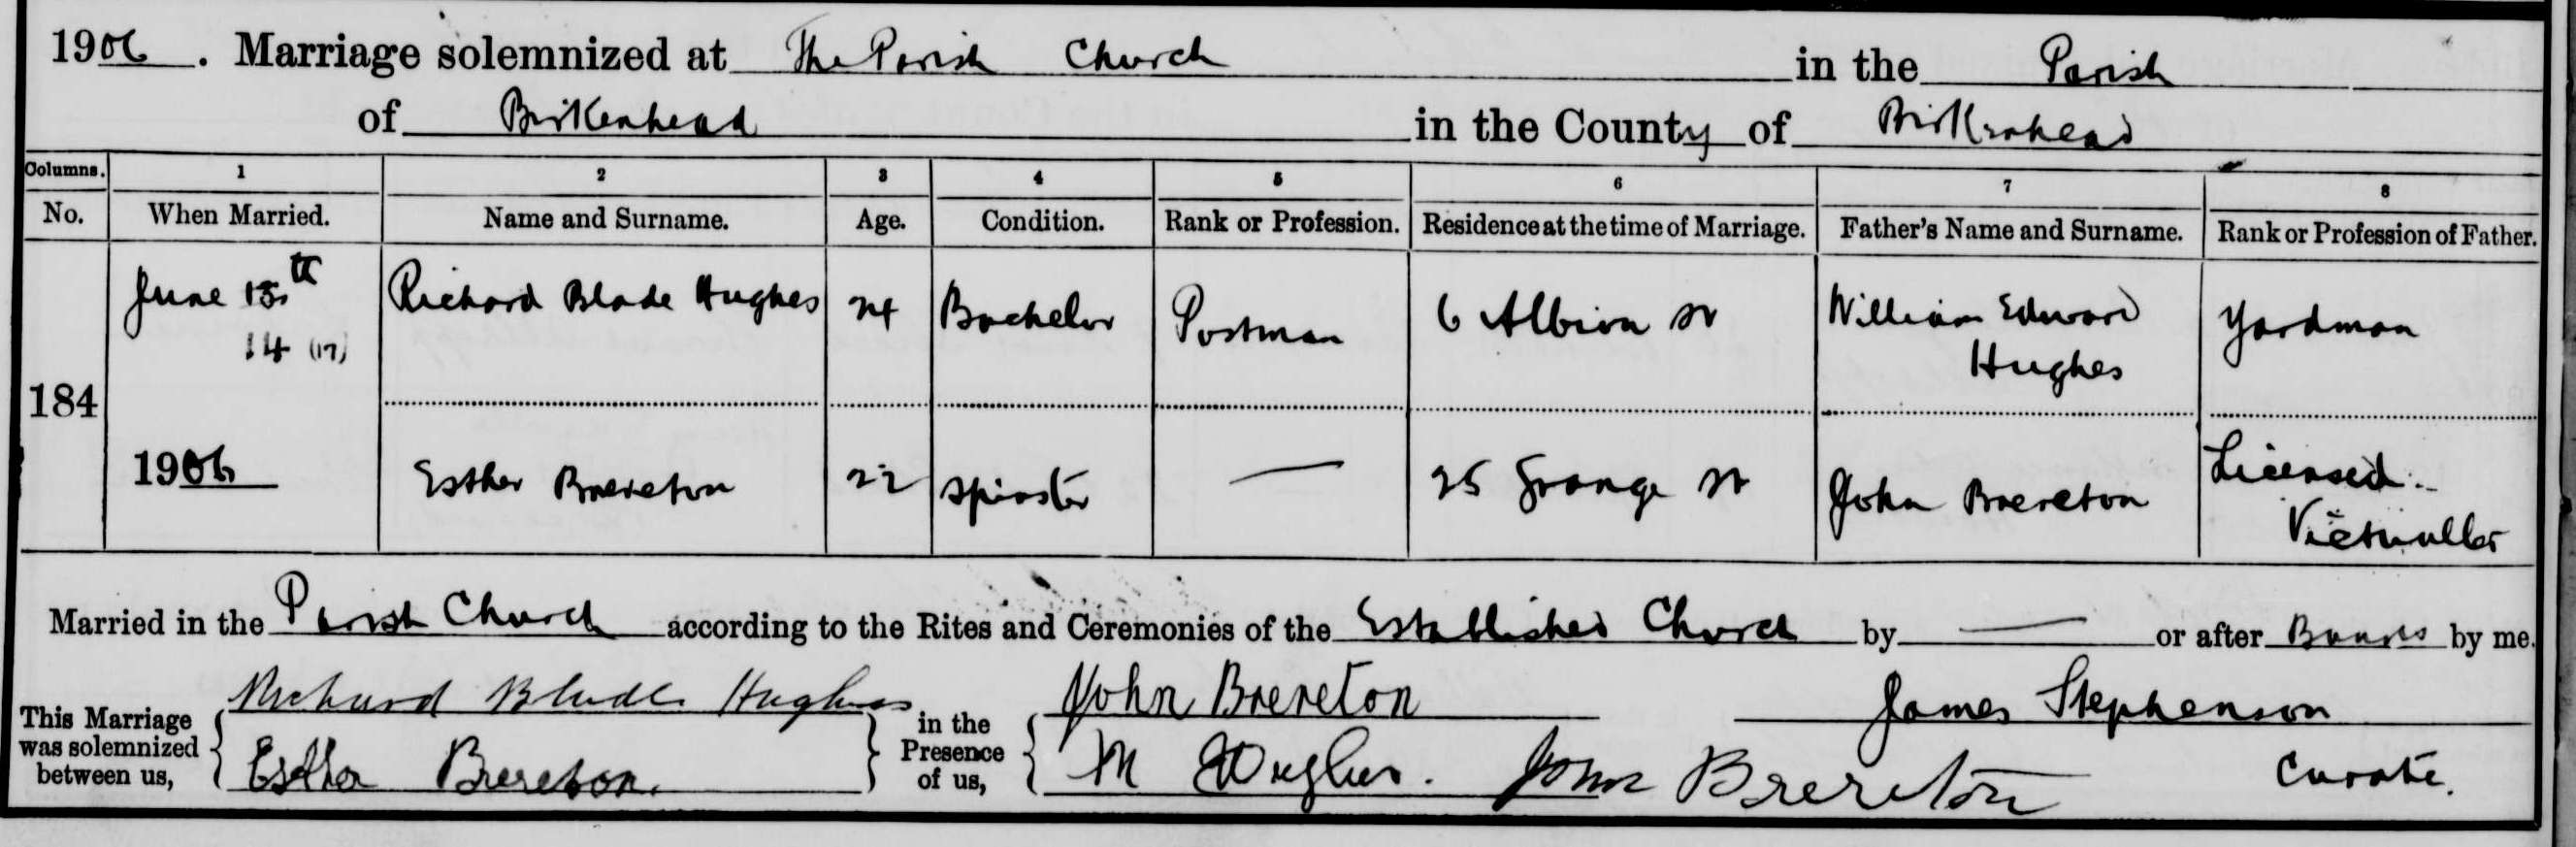 1906. Marriage solemnized at The Parish Church in the Parish
of Birkenhead in the County of Birkenhead
Columns. 1 2 3 4 5 6 7 8
No. When Married. Name and Surname. Age. Condition. Rank or Profession. Residence at the time of Marriage. Father's Name and Surname. Rank or Profession of Father.
184
June 15th
14 (17)
1906
Richard Blade Hughes 24 Bachelor Postman 6 Albion St William Edward
Hughes
Yardman
Esther Brereton 22 Spinster — 25 Grange St John Brereton Licensed
Victualler
Married in the Parish Church according to the Rites and Ceremonies of the Established Church by — or after Banns by me,
This Marriage
was solemnized
between us,
Richard Blade Hughes
Esther Brereton.
in the
Presence
of us,
John Brereton
M Hughes. John Brereton
James Stephenson
Curate.